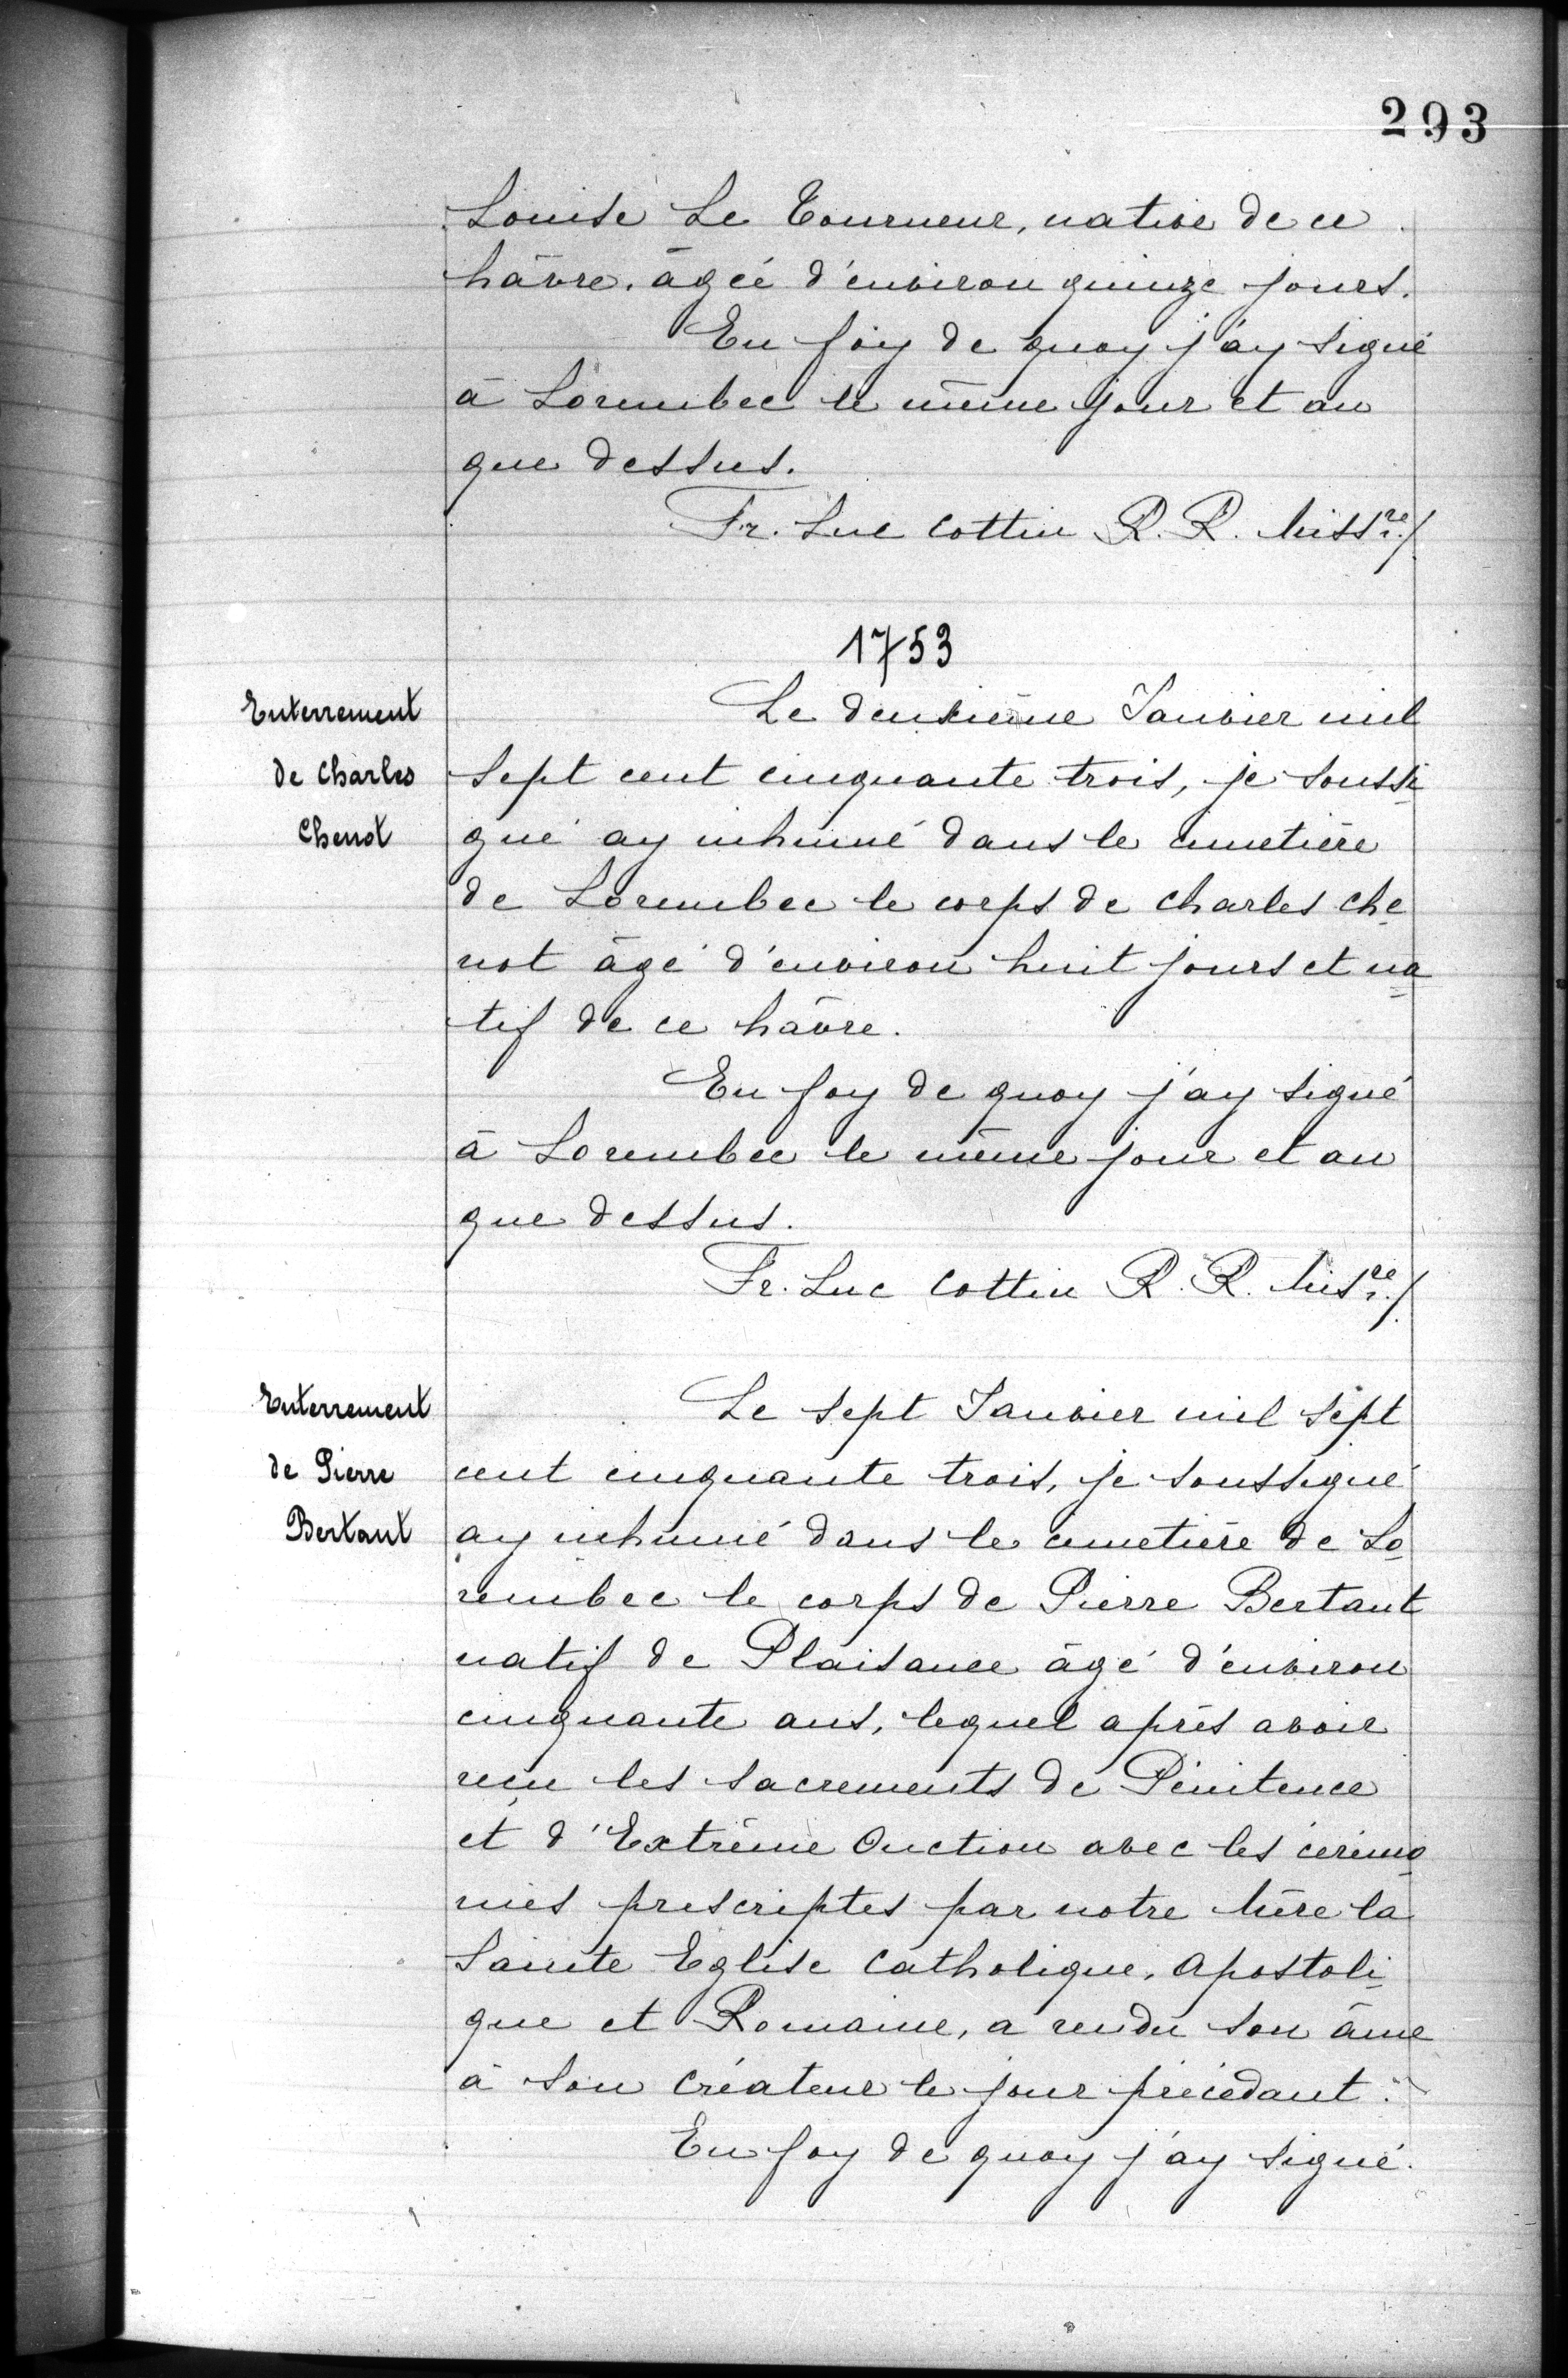 293
Louise Le Tourneur, native de ce
hâvre, âgée d'environ quinze jours.
En foiy de quoy j'ay signé
à Lorembec le même jour et an
que dessus.
Fr. Luc Cottin R. R. Missre./
1753
Enterrement
de Charles
Chenot
Le deuxième Janvier mil
sept cent cinquante trois, je soussi
gné ay inhumé dans le cimetière
de Lorembec le corps de Charles Che
not âgé d'environ huit jours et na
tif de ce hâvre.
En foy de quoy j'ay signé
à Lorembec le même jour et an
que dessus.
Fr. Luc Cottin R. R. Misre./
Enterrement
de Pierre
Bertaut
Le sept Janvier mil sept
cent cinquante trois, je soussigné
ay inhumé dans le cimetière de Lo
rembec le corps de Pierre Bertaut
natif de Plaisance âgé d'environ
cinquante ans, lequel après avoir
reçu les sacrements de Pénitence
et d'Extrême Onction avec les cérémo
nies prescriptes par notre Mère la
Sainte Eglise Catholique, Apostoli
que et Romaine, a rendu son âme
à son Créateur le jour précédant.
En foy de quoy j'ay signé.